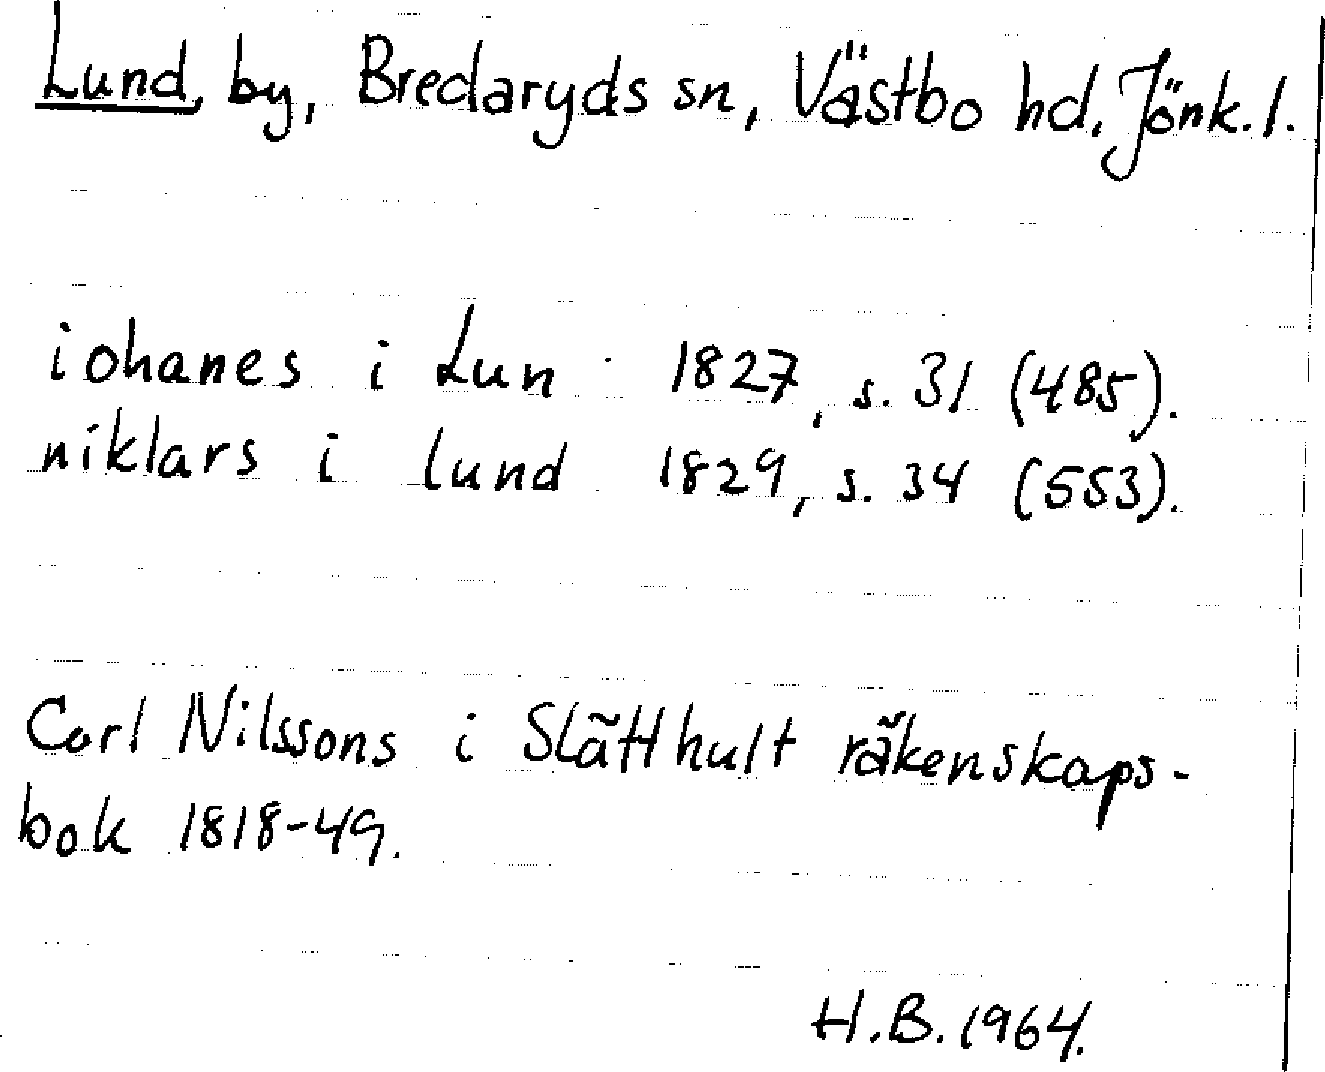 Lund, by, Bredaryds sn, Västbo hd. Jönk. l.
iohanes i Lun 1827, s. 31 (485).
niklars i lund 1829, s. 34 (553).
Carl Nilssons i Slätthult räkenskaps-
bok 1818-49.
H.B. 1964.